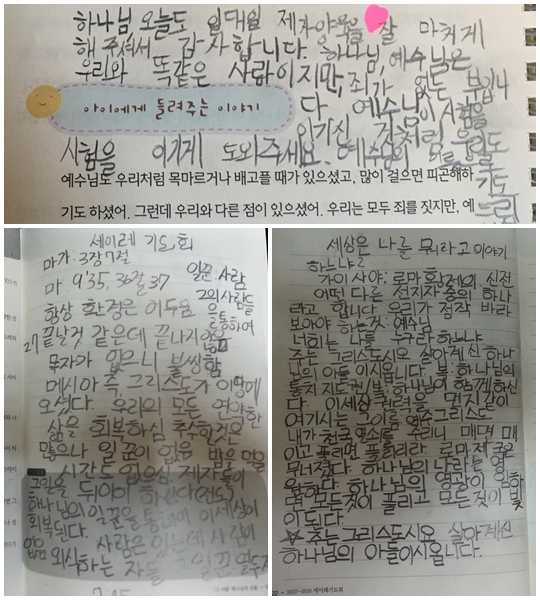 하나님 오늘도 일대일 제자양육을 잘 마치게
해 주셔서 감사합니다. 하나님, 예수님은
우리와 똑같은 사람이지만, 죄가 없는 분입니
다. 예수님이 시험을
아이에게 들려주는 이야기
이기신 것처럼 우리도
시험을 이기게 도와주세요. 예수님의
기도
예수님도 우리처럼 목마르거나 배고플 때가 있으셨고, 많이 걸으면 피곤해하
기도 하셨어. 그런데 우리와 다른 점이 있으셨어. 우리는 모두 죄를 짓지만, 예
세이레 기도회
마가: 3장 7절
마 9:35, 36절 37
일꾼 사람
그의 사람들
을 통하여
항상 환경은 어두움
끝날것 같은데 끝나지않음
목자가 없으니 불쌍함
메시아 즉, 그리스도가 이땅에
오셨다. 우리의 모든 연약한
삶을 회복하심 추수할것은
많으나 일꾼이 없음 밥을 먹을
시간도 없으심 제자들이
그일을 뒤이어 하신다(전도)
하나님의 일꾼을 통하여 이세상이
회복된다. 사람은 있는데 사람이
없음 외식하는 자들
세상은 나를 무어라고 이야기
하느냐?
가이사야: 로마 황제의 신전
어떤 다른 선지자 중의 하나
라고 합니다 우리가 정작 바라
보아야 하는것: 예수님
너희는 나를 누구라 하느냐
주는 그리스도시요 살아계신 하나
님의 아들 이시옵니다
다. 이세상 권력을 먼지같이
여기시는 그이름 예수그리스도
내가 천국 열쇠를 주리니 매면 매
이고 풀리면 풀리리라. 로마제국은
무너졌다. 하나님의 나라는 영
원하다. 하나님의 영광이 임하
면 모든것이 풀리고 모든것이 빛
이 된다.
☆ 주는 그리스도시요 살아계신
하나님의 아들이시옵니다.
2017-2018 세이레기도회